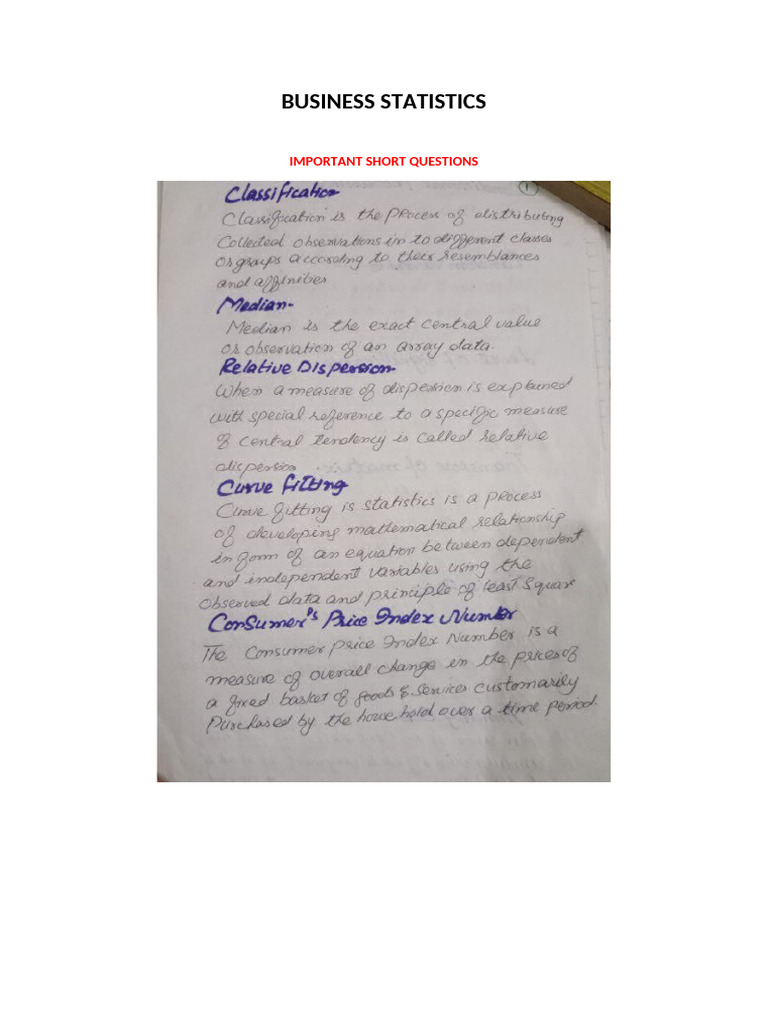 BUSINESS STATISTICS
IMPORTANT SHORT QUESTIONS
1
Classification
Classification is the process of distributing
Collected observations in to different classes
or groups according to their resemblances
and affinities
Median-
Median is the exact central value
or observation of an array data.
Relative Dispersion-
When a measure of dispersion is explained
with special reference to a specific measure
of central tendency is called relative
dispersion.
Curve fitting
Curve fitting is statistics is a process
of developing mathematical relationship
in form of an equation between dependent
and independent variables using the
observed data and principle of least Square
Consumer's Price Index Number
The Consumer price Index Number is a
measure of overall change in the prices of
a fixed basket of goods & Services customarily
Purchased by the house hold over a time period.